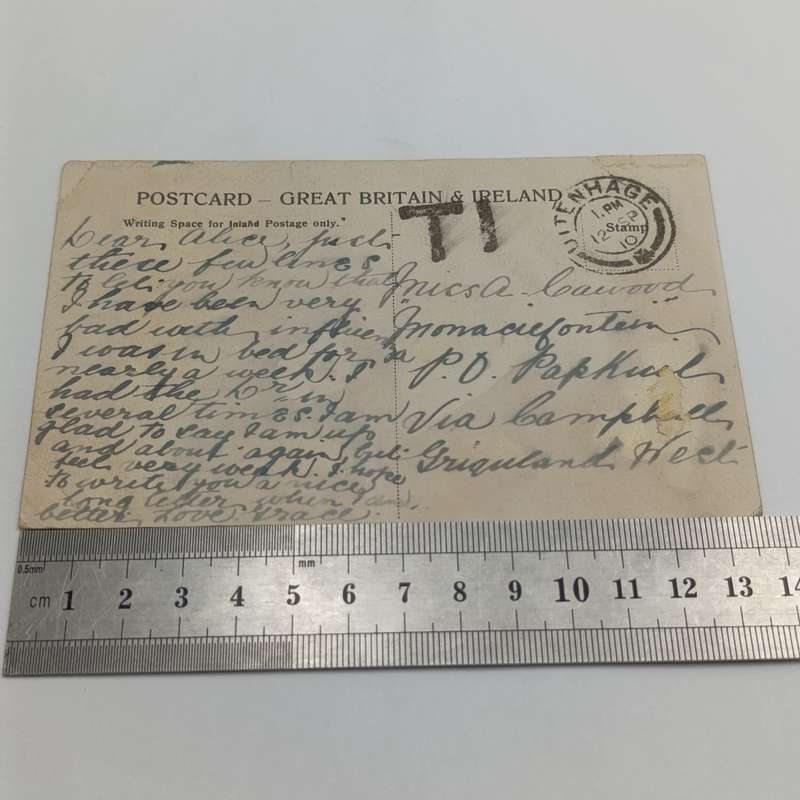 POSTCARD – GREAT BRITAIN & IRELAND
Writing Space for Inland Postage only."
T1
UITENHAGE
1.PM
12 SP
10
Stamp
Dear Alice, just
these few lines
to let you know that
I have been very
bad with influen
za
I was in bed for
nearly a week. I
had the Dr in
several times. I am
glad to say I am up
and about again, but
feel very weak. I hope
to write you a nice
long letter when I am
better. Love Grace.
Miss A. Cawood
"Monaciefontein"
P.O. Papkuil
Via Campbell
Griqualand West
0.5mm
mm
cm 1 2 3 4 5 6 7 8 9 10 11 12 13 14